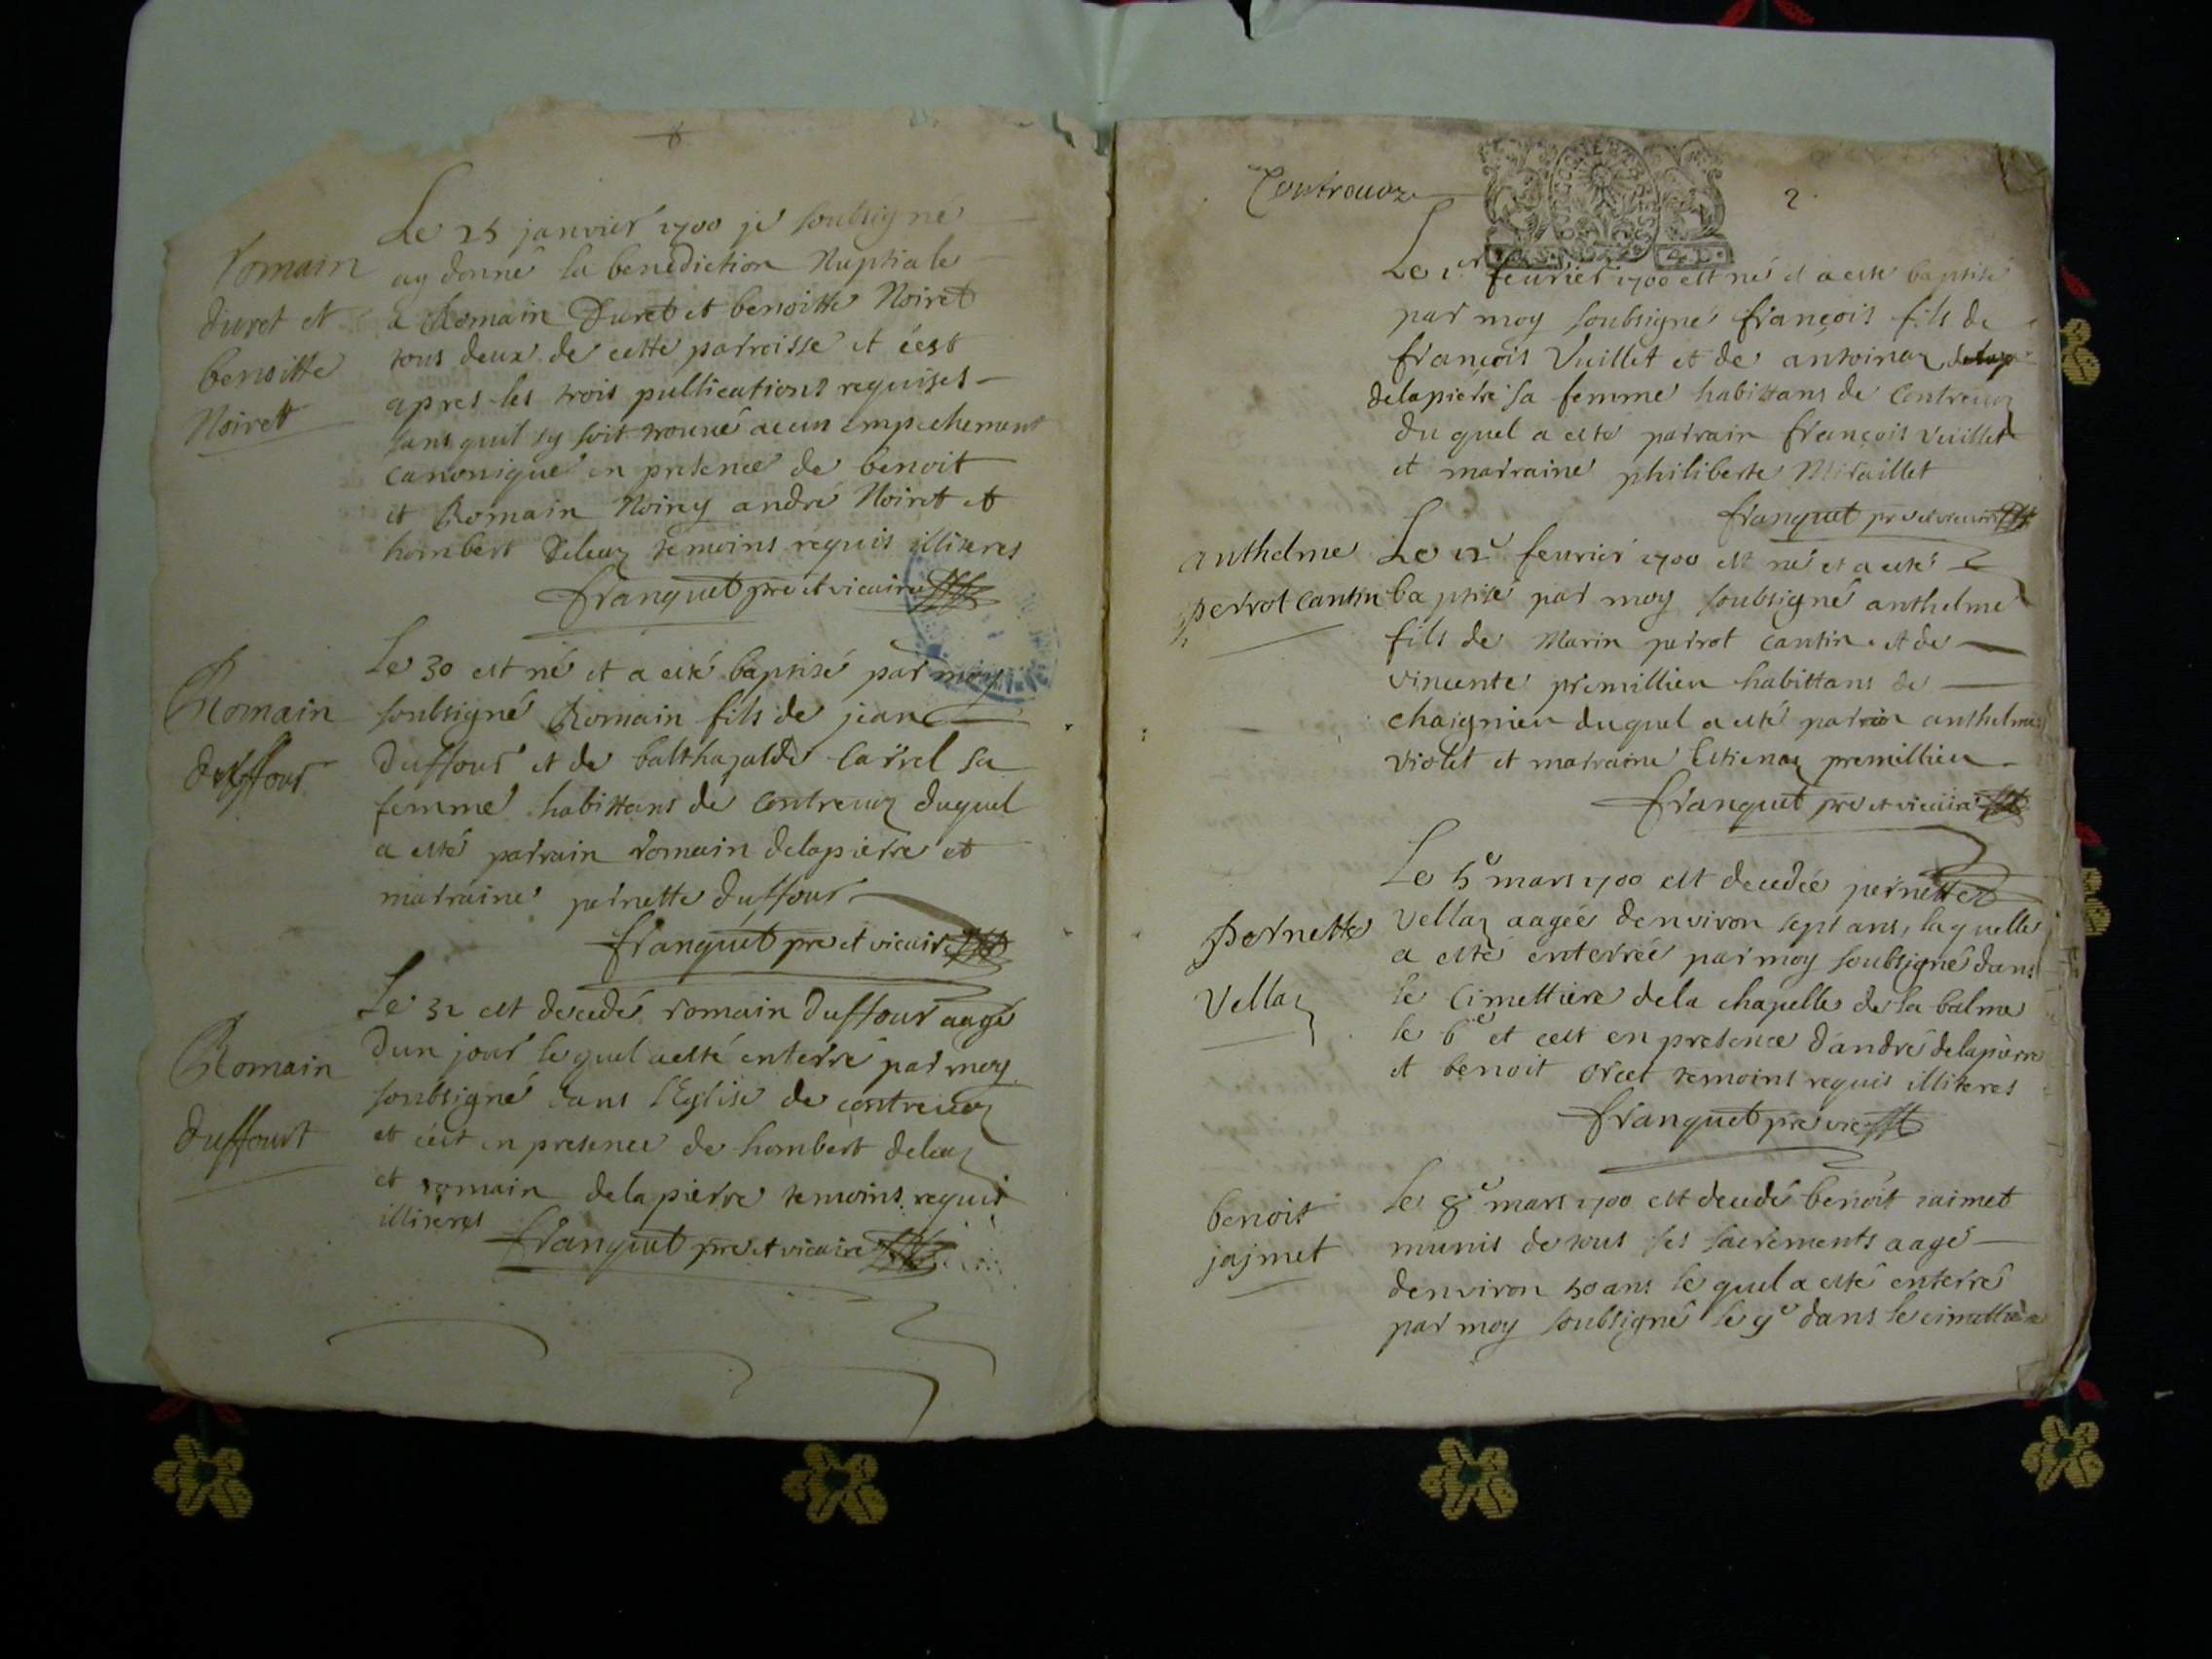 Romain
duret et
benoitte
Noirett
Le 25 janvier 1700 je soubsigné
ay donné la benediction Nuptiale
a Romain Duret et benoitte Noiret
tous deux de cette parroisse et c'est
apres les trois publications requises
sans quil sy soit trouué aucun empechement
canonique en presence de benoit
et Romain Noirey andré Noirett et
hombert Deleaz temoins requis illiteres
franquet pre et vicaire
Romain
duffour
Le 30 est né et a esté baptisé par moy
soubsigné Romain fils de jean
Duffour et de balthazarde Carrel sa
femme habittans de Contreuoz duquel
a esté parrain romain delapierre et
marraine pernette duffour
franquet pre et vicaire
Romain
duffourt
Le 31 est decedé romain duffour aagé
dun jour lequel a esté enterré par moy
soubsigné dans l'Eglise de contreuoz
et c'est en presence de hombert deleaz
et romain delapierre temoins requis
illiteres
franquet pre et vicaire
Contreuoz
2
4 D.
Le 1er feurier 1700 est né et a esté baptisé
par moy soubsigné françois fils de
françois Vuillet et de antoinaz
delapierre sa femme habittans de Contreuoz
du quel a esté parrain françois Vuillet
et marraine philiberte Miraillet
franquet pre et vicaire
anthelme
perrot cantin
Le 12 feurier 1700 est né et a esté
baptisé par moy soubsigné anthelme
fils de Marin perrot cantin et de
vincente premillieu habittans de
chaignieu duquel a esté parrain anthelme
violet et marraine Estienaz premillieu
franquet pre et vicaire
Pernette
Vellaz
Le 5e mars 1700 est decedée pernette
Vellaz aagée denviron sept ans, laquelle
a esté enterrée par moy soubsigné dans
le Cimettiere de la chapelle de la balme
le 6e et cest en presence d'andré delapierre
et benoit temoins requis illiteres
franquet pre vic
benoit
jajmet
Le 8e mars 1700 est decedé benoit iaimet
munis de tous ses sacrements aagé
denviron 50 ans le quel a esté enterré
par moy soubsigné le 9e dans le cimettiere